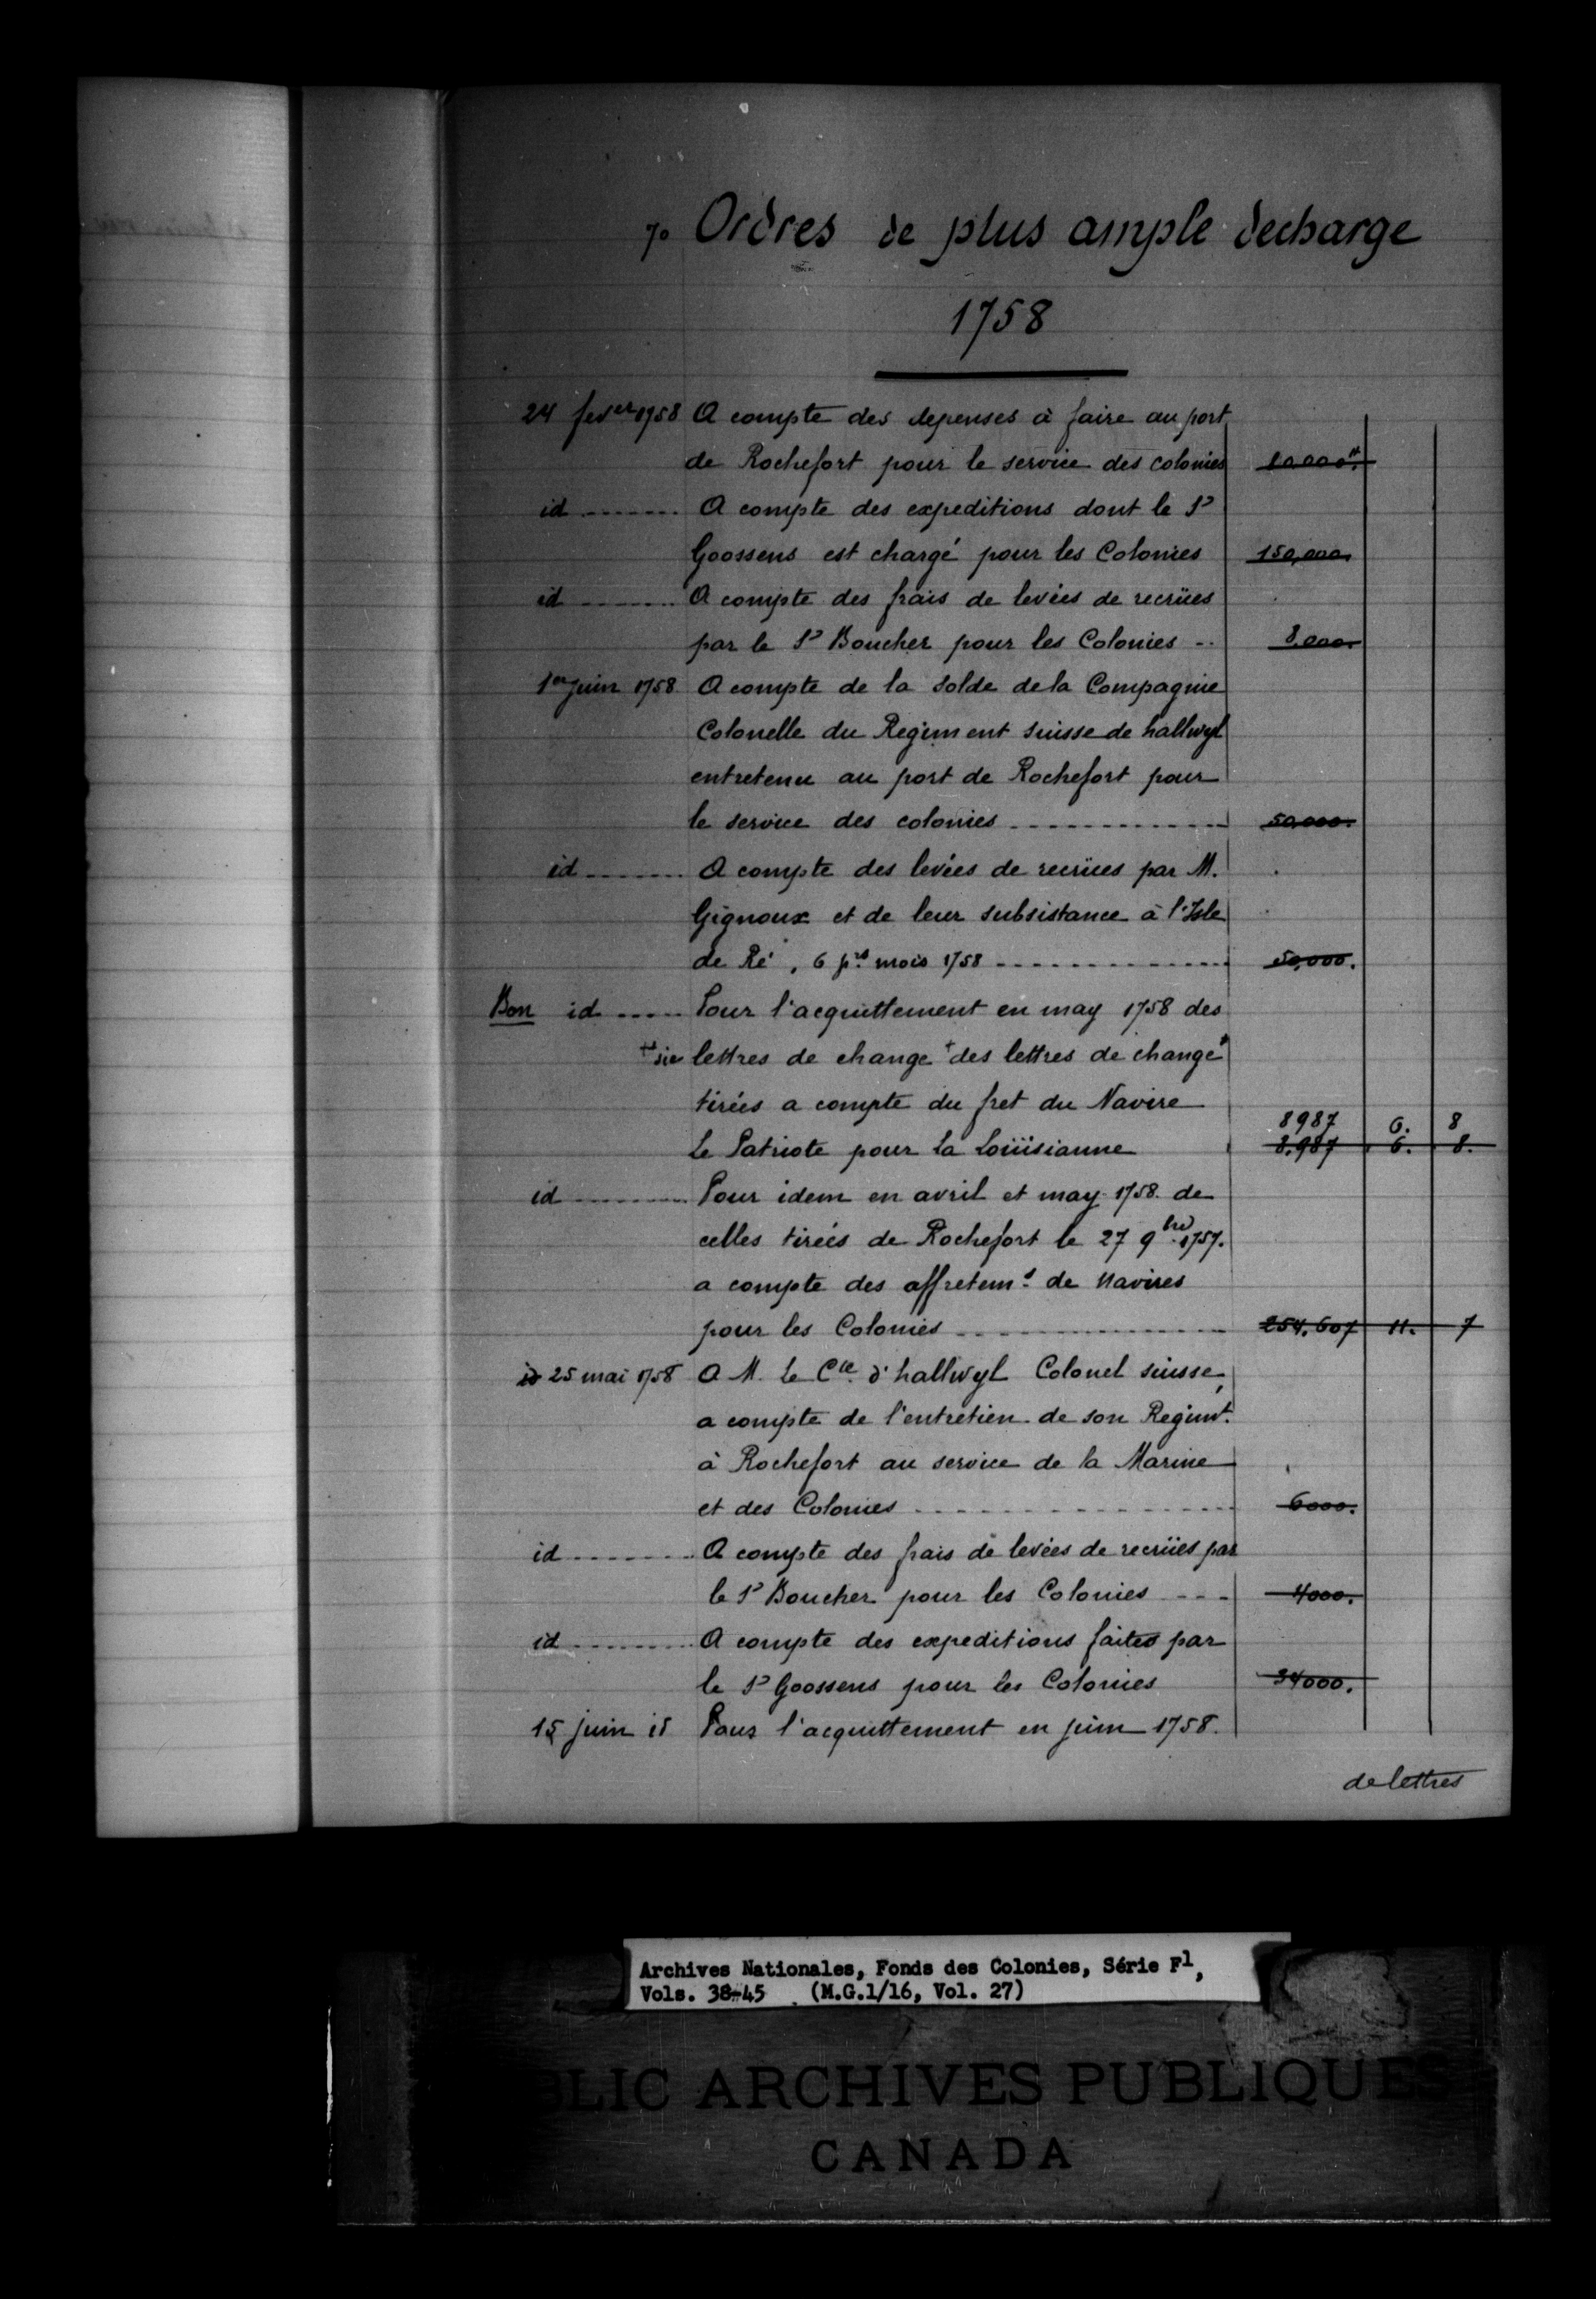 7o Ordres de plus ample decharge
1758
24 fever 1758 A compte des depenses à faire au port
de Rochefort pour le service des colonies
id ........ A compte des expeditions dont le Sr
Goossens est chargé pour les Colonies 150,000.
id ........ A compte des frais de levées de recrües
par le Sr Boucher pour les Colonies -- 8.000.
1er Juin 1758 A compte de la Solde de la Compagnie
Colonelle du Regiment suisse de hallwyl
entretenu au port de Rochefort pour
le service des colonies ........ 50.000.
id ........ A compte des levées de recrües par M.
Gignoux et de leur subsistance à l'Isle
de Ré, 6 prs mois 1758 ........ 50,000.
Bon id ..... Pour l'acquittement en may 1758 des
+sic lettres de change +des lettres de change+
tirées a compte du fret du Navire
8987 6. 8
Le Patriote pour la Loüisianne 8.987 6. 8.
id ........ Pour idem en avril et may 1758 de
celles tirées de Rochefort le 27 9bre 1757.
a compte des affretemts de Navires
pour les Colonies ........ 254.607 11. 7
id 25 mai 1758 A M. Le Cte d'hallwyl Colonel suisse,
a compte de l'entretien de son Regimt.
à Rochefort au service de la Marine
et des Colonies ........ 6000.
id ........ A compte des frais de levées de recrües par
le Sr Boucher pour les Colonies --- 4000.
id ........ A compte des expeditions faites par
le Sr Goossens pour les Colonies 34000.
15 juin id Pour l'acquittement en juin 1758.
de lettres
Archives Nationales, Fonds des Colonies, Série F1,
Vols. 38-45 (M.G.1/16, Vol. 27)
BLIC ARCHIVES PUBLIQUES
CANADA